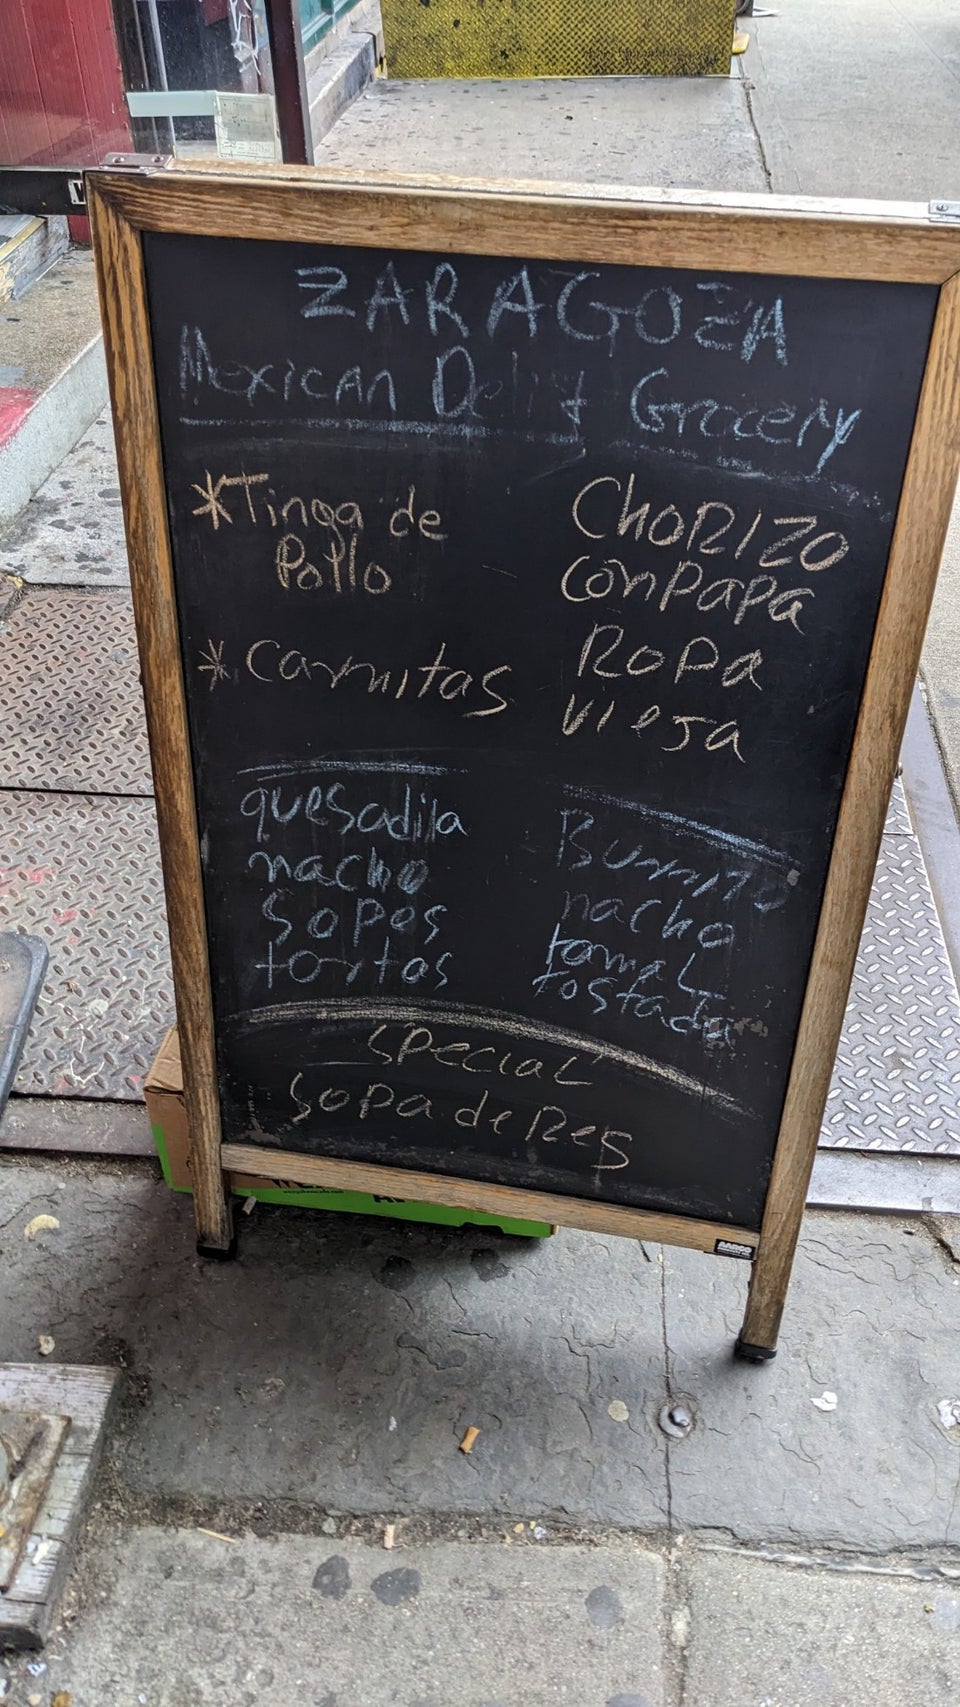 ZARAGOZA
Mexican Deli & Grocery
*Tinga de
Pollo
*Carnitas
CHORIZO
conpapa
ROPA
VIEJA
quesadilla
nacho
Sopes
tortas
Burrito
nacho
tamaL
tostada
SPeciaL
Sopa de Res
AARCO